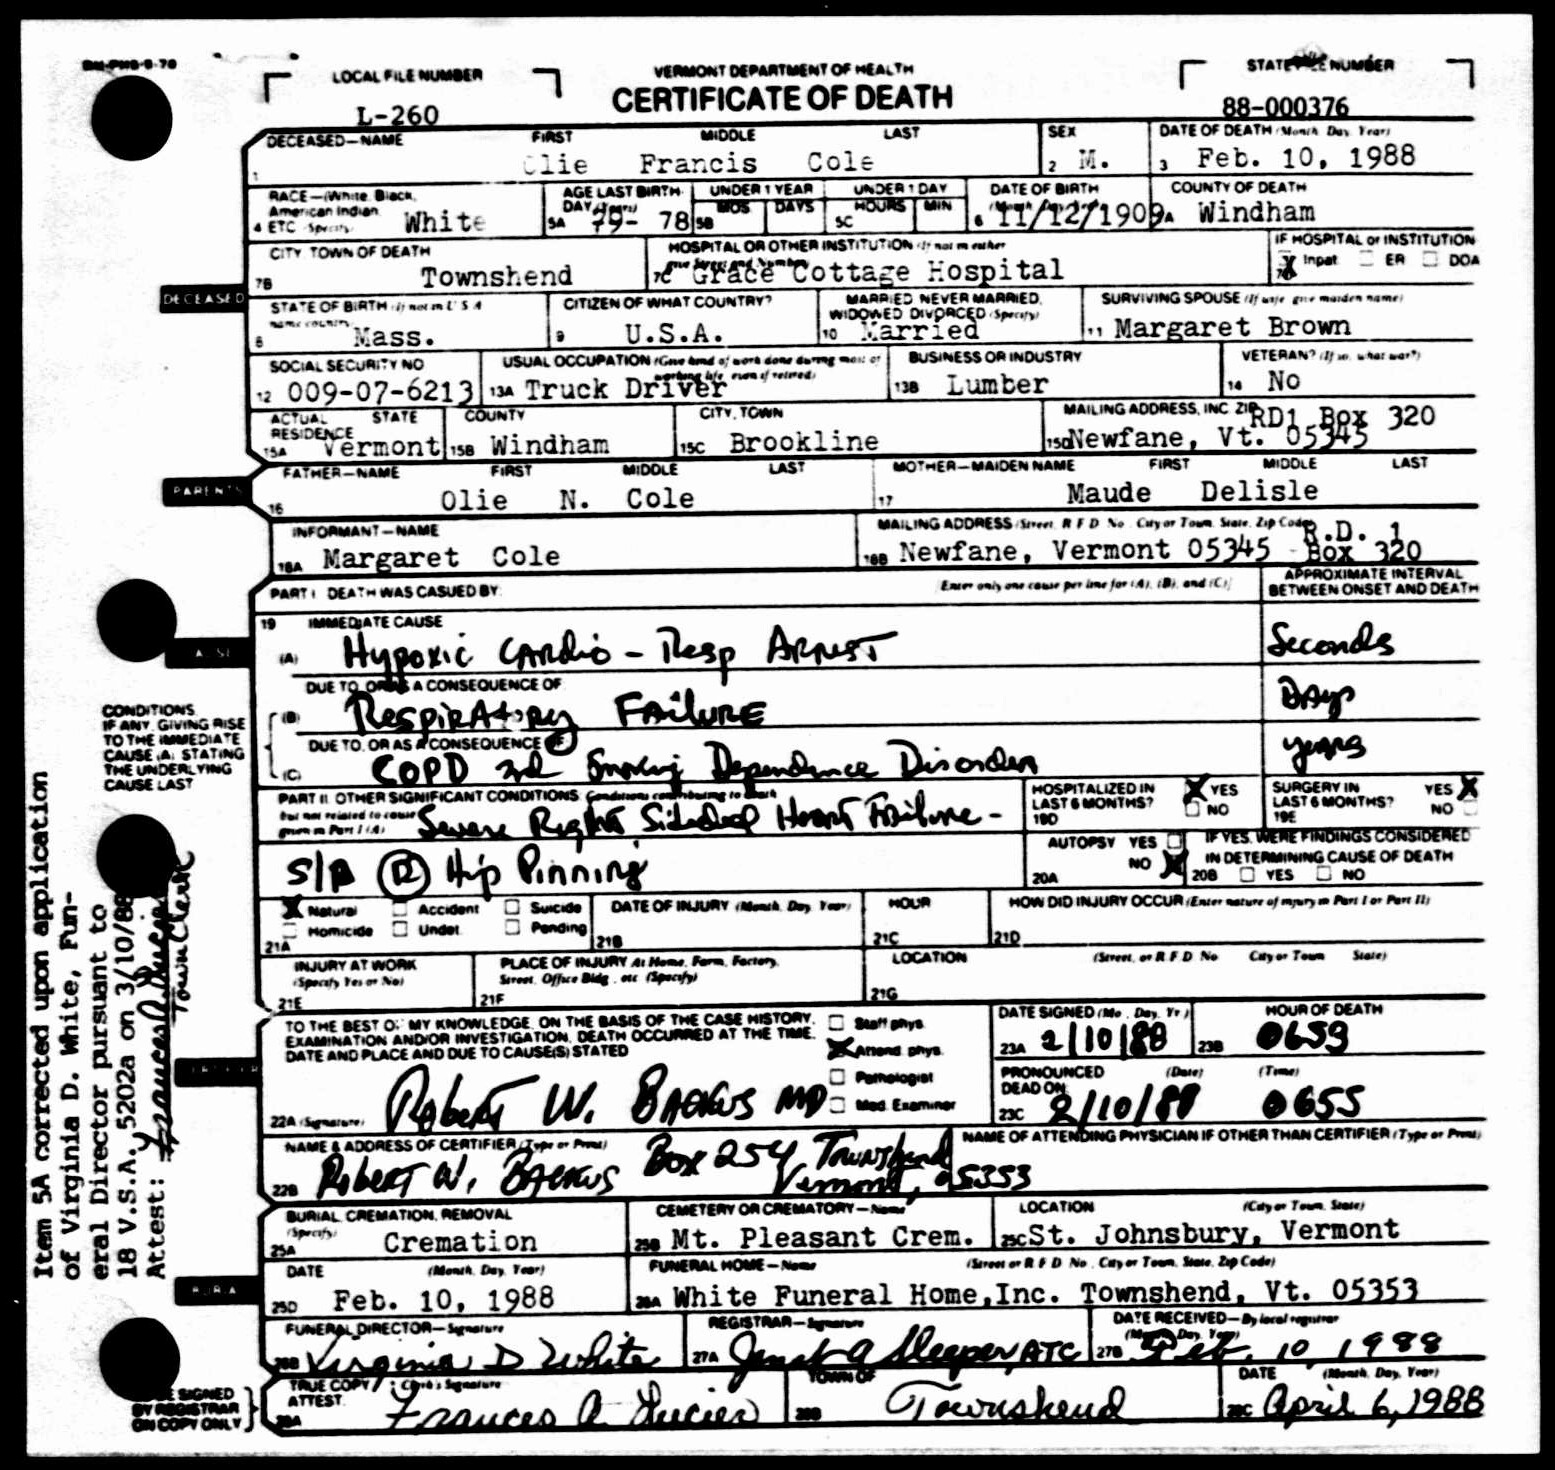 LOCAL FILE NUMBER
L-260
VERMONT DEPARTMENT OF HEALTH
CERTIFICATE OF DEATH
STATE FILE NUMBER
88-000376
DECEASED—NAME FIRST MIDDLE LAST
1 Olie Francis Cole
SEX
2 M.
DATE OF DEATH (Month, Day, Year)
3 Feb. 10, 1988
RACE—(White, Black,
American Indian,
4 ETC. Specify) White
AGE LAST BIRTH-
DAY (Years)
5A 79- 78
UNDER 1 YEAR
5B MOS DAYS
UNDER 1 DAY
5C HOURS MIN
DATE OF BIRTH
(Month, Day, Year)
6 11/12/1909
COUNTY OF DEATH
7A Windham
DECEASED
CITY, TOWN OF DEATH
7B Townshend
HOSPITAL OR OTHER INSTITUTION (If not in either
give Street and Number)
7C Grace Cottage Hospital
IF HOSPITAL or INSTITUTION
7D X Inpat ER DOA
STATE OF BIRTH (If not in U S A
name country)
8 Mass.
CITIZEN OF WHAT COUNTRY?
9 U.S.A.
MARRIED NEVER MARRIED,
WIDOWED DIVORCED (Specify)
10 Married
SURVIVING SPOUSE (If wife give maiden name)
11 Margaret Brown
SOCIAL SECURITY NO
12 009-07-6213
USUAL OCCUPATION (Give kind of work done during most of
working life, even if retired)
13A Truck Driver
BUSINESS OR INDUSTRY
13B Lumber
VETERAN? (If so, what war?)
14 No
ACTUAL RESIDENCE STATE
15A Vermont
COUNTY
15B Windham
CITY, TOWN
15C Brookline
MAILING ADDRESS, INC ZIP
RD1 Box 320
15D Newfane, Vt. 05345
PARENTS
FATHER—NAME FIRST MIDDLE LAST
16 Olie N. Cole
MOTHER—MAIDEN NAME FIRST MIDDLE LAST
17 Maude Delisle
INFORMANT—NAME
18A Margaret Cole
MAILING ADDRESS (Street, R F D No , City or Town, State, Zip Code)
18B Newfane, Vermont 05345 - R.D. 1
Box 320
PART I DEATH WAS CASUED BY:
[Enter only one cause per line for (A), (B), and (C)]
APPROXIMATE INTERVAL
BETWEEN ONSET AND DEATH
19 IMMEDIATE CAUSE
(A) Hypoxic Cardio - Resp Arrest
Seconds
DUE TO, OR AS A CONSEQUENCE OF
(B) Respiratory Failure
Days
DUE TO, OR AS A CONSEQUENCE OF
(C) COPD 2nd Smoking Dependence Disorder
years
CONDITIONS
IF ANY, GIVING RISE
TO THE IMMEDIATE
CAUSE (A) STATING
THE UNDERLYING
CAUSE LAST
PART II. OTHER SIGNIFICANT CONDITIONS: Conditions contributing to death
but not related to cause
given in Part I (A)
Severe Right Sided Heart Failure -
S/P (R) Hip Pinning
HOSPITALIZED IN
LAST 6 MONTHS?
19D X YES NO
SURGERY IN
LAST 6 MONTHS?
19E YES X NO
AUTOPSY YES
20A NO X
IF YES, WERE FINDINGS CONSIDERED
IN DETERMINING CAUSE OF DEATH
20B YES NO
X Natural Accident Suicide
Homicide Undet. Pending
21A
DATE OF INJURY (Month, Day, Year)
21B
HOUR
21C
HOW DID INJURY OCCUR (Enter nature of injury in Part I or Part II)
21D
INJURY AT WORK
(Specify Yes or No)
21E
PLACE OF INJURY At Home, Farm, Factory,
Street, Office Bldg , etc (Specify)
21F
LOCATION (Street, or R F D No City or Town State)
21G
TO THE BEST OF MY KNOWLEDGE, ON THE BASIS OF THE CASE HISTORY,
EXAMINATION AND/OR INVESTIGATION, DEATH OCCURRED AT THE TIME,
DATE AND PLACE AND DUE TO CAUSE(S) STATED
Staff phys.
X Attend. phys.
Pathologist
Med. Examiner
22A (Signature) Robert W. Backus MD
DATE SIGNED (Mo , Day, Yr )
23A 2/10/88
HOUR OF DEATH
23B 0653
PRONOUNCED DEAD ON: (Date) (Time)
23C 2/10/88 0655
NAME & ADDRESS OF CERTIFIER (Type or Print)
22B Robert W. Backus Box 254 Townshend
Vermont, 05353
NAME OF ATTENDING PHYSICIAN IF OTHER THAN CERTIFIER (Type or Print)
BURIAL, CREMATION, REMOVAL
(Specify)
25A Cremation
CEMETERY OR CREMATORY—Name
25B Mt. Pleasant Crem.
LOCATION (City or Town, State)
25C St. Johnsbury, Vermont
DATE (Month, Day, Year)
25D Feb. 10, 1988
FUNERAL HOME—Name (Street or R F D No , City or Town, State, Zip Code)
26A White Funeral Home,Inc. Townshend, Vt. 05353
FUNERAL DIRECTOR—Signature
26B Virginia D White
REGISTRAR—Signature
27A Sleeper, ATC
DATE RECEIVED—By local registrar
(Month, Day, Year)
27B Feb. 10, 1988
BE SIGNED
BY REGISTRAR
ON COPY ONLY
TRUE COPY Clerk's Signature
ATTEST.
28A Frances A. Lucier
TOWN OF
28B Townshend
DATE (Month, Day, Year)
28C April 6, 1988
Item 5A corrected upon application
of Virginia D. White, Fun-
eral Director pursuant to
18 V.S.A. 5202a on 3/10/88
Attest: Frances A. Lucier
Town Clerk